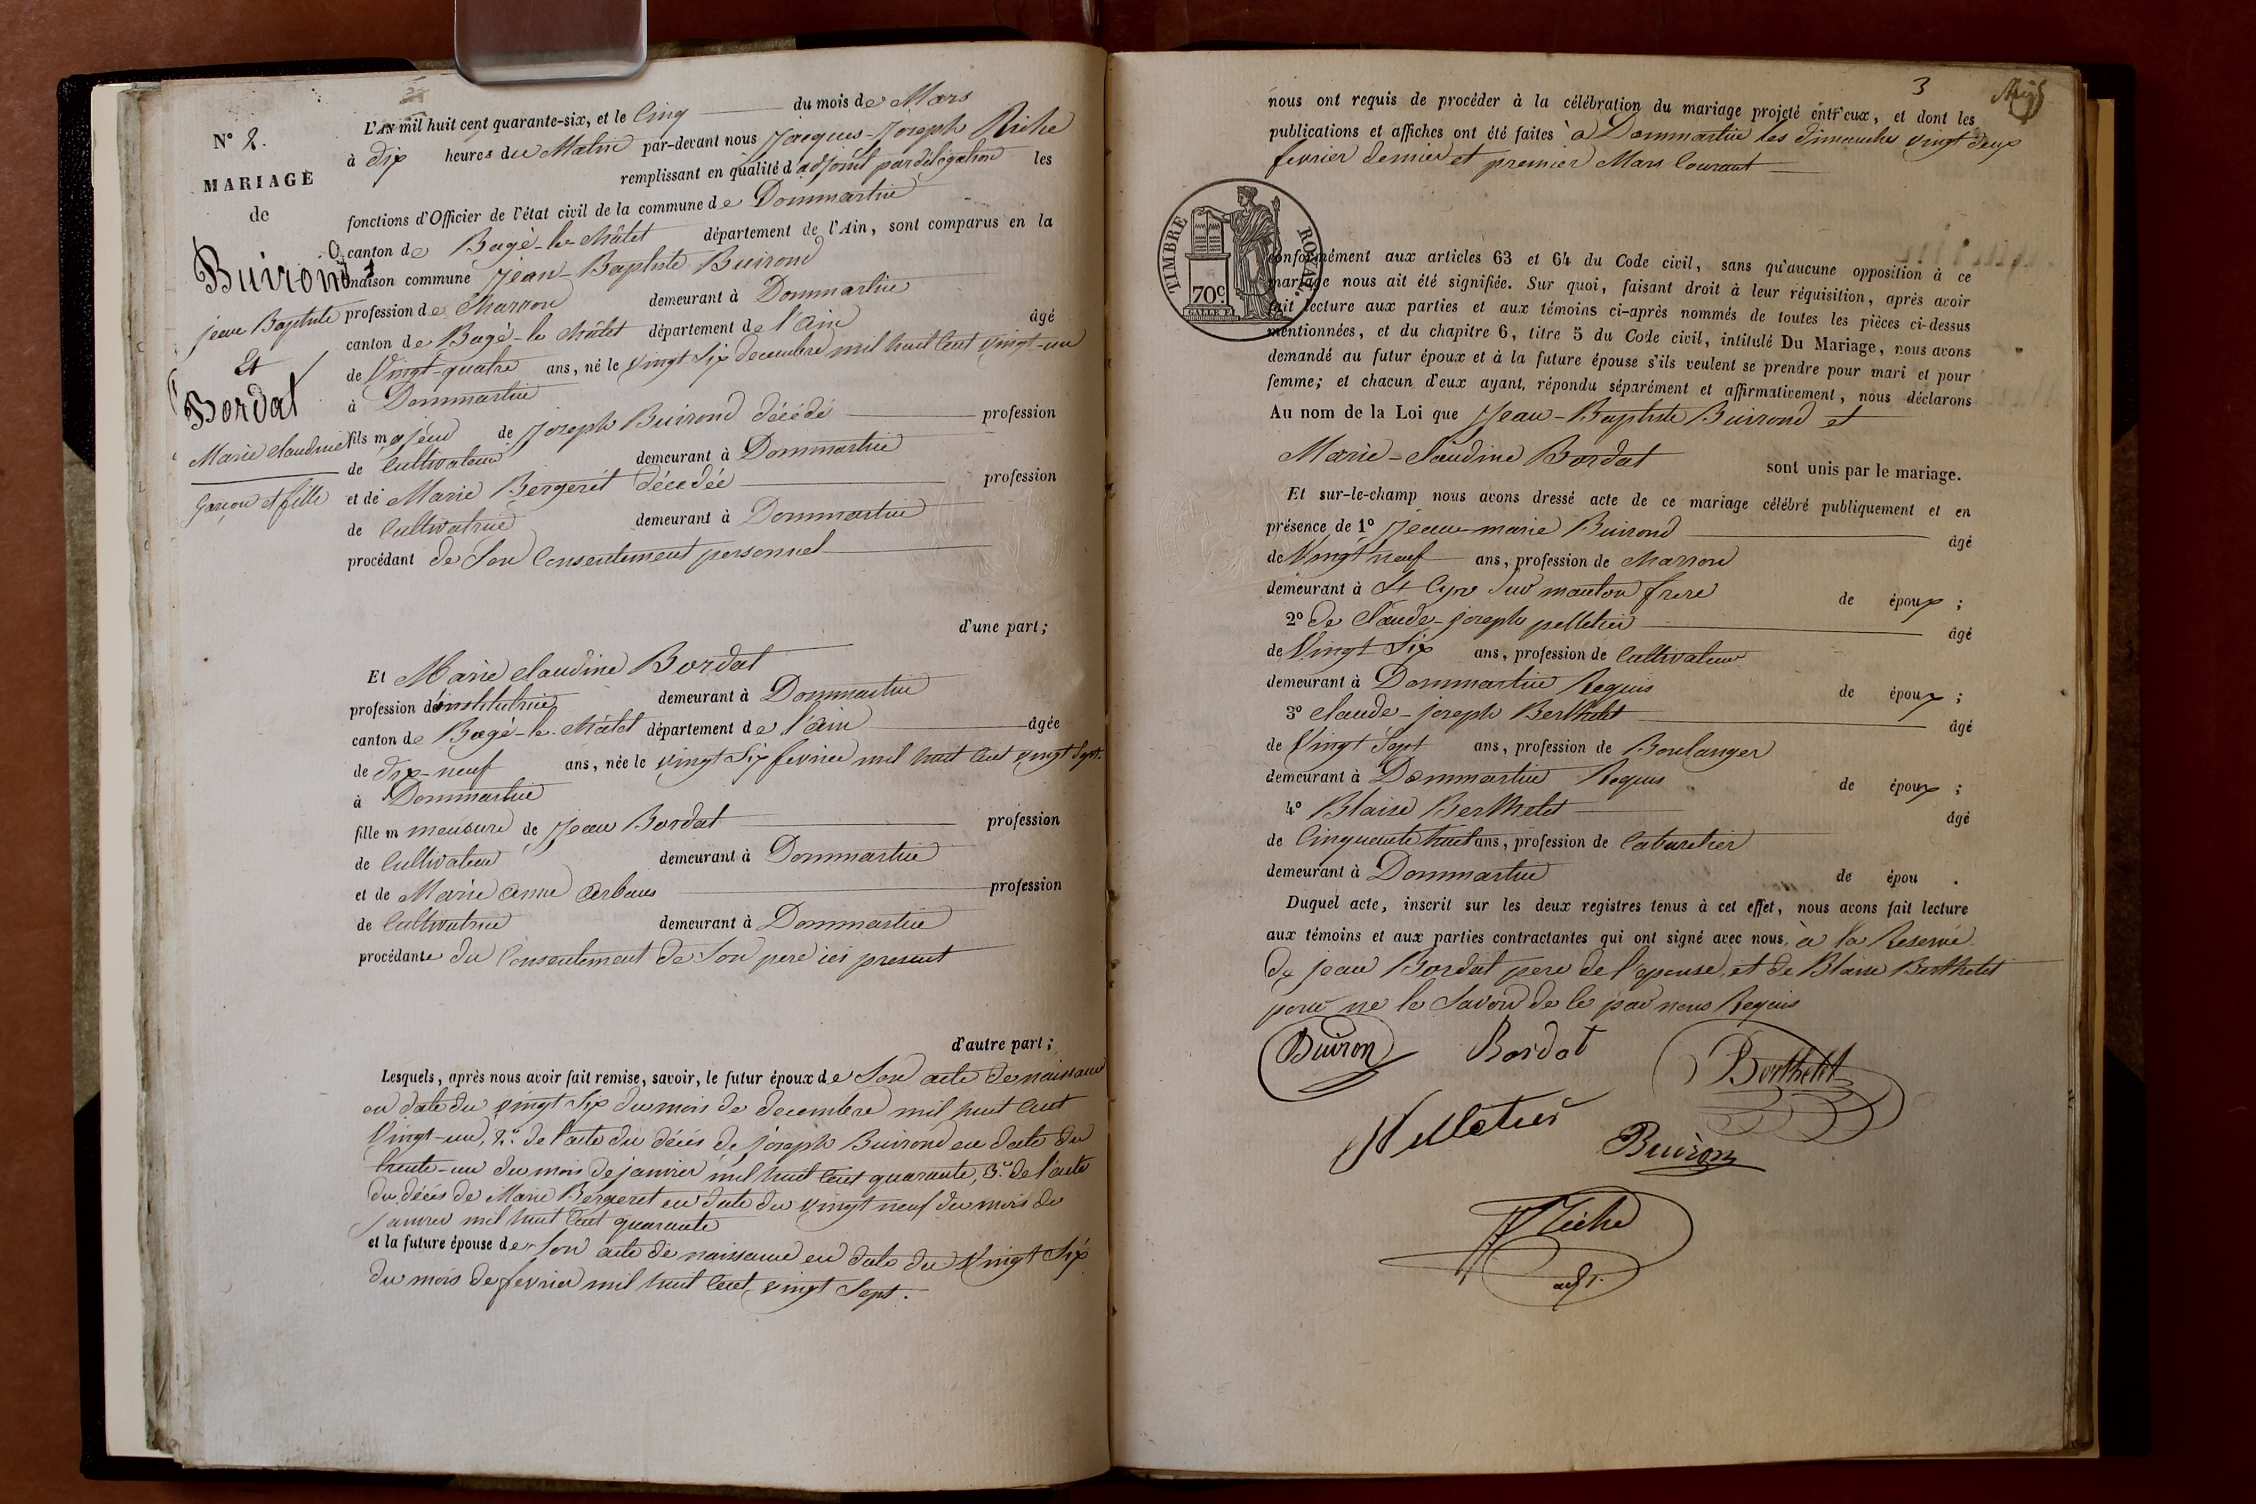 N° 2.
MARIAGE
de
Buirond
jean Baptiste
Et
Bordat
Marie claudine
Garçon et fille
L'AN mil huit cent quarante-six, et le Cinq du mois de Mars
à dix heures du Matin par-devant nous Jacques-Joseph Riche
remplissant en qualité d'adjoint par délégation les
fonctions d'Officier de l'état civil de la commune de Dommartin
canton de Bagé-le-Châtel département de l'Ain, sont comparus en la
maison commune Jean-Baptiste Buirond
profession de Charron demeurant à Dommartin
canton de Bagé-le Châtel département de l'Ain âgé
de Vingt-quatre ans, né le vingt Six decembre mil huit Cent vingt-un
à Dommartin
fils majeur de Joseph Buirond décédé profession
de Cultivateur demeurant à Dommartin
et de Marie Bergeret décédée profession
de Cultivatrice demeurant à Dommartin
procédant de Son Consentement personnel
d'une part;
Et Marie claudine Bordat
profession d'institutrice demeurant à Dommartin
canton de Bagé-le-Châtel département de l'Ain âgée
de dix-neuf ans, née le vingt Six fevrier mil huit Cent vingt Sept.
à Dommartin
fille mineure de Jean Bordat profession
de Cultivateur demeurant à Dommartin
et de Marie anne profession
de Cultivatrice demeurant à Dommartin
procédante du Consentement de Son pere ici present
d'autre part;
Lesquels, après nous avoir fait remise, savoir, le futur époux de Son acte de naissance
en date du vingt Six du mois de decembre mil huit Cent
Vingt-un, 2° de l'acte du décés de joseph Buirond en date du
trente-un du mois de janvier mil huit Cent quarante, 3° de l'acte
du décés de Marie Bergeret en date du vingt neuf du mois de
janvier mil huit Cent quarante
et la future épouse de Son acte de naissance en date du Vingt Six
du mois de fevrier mil huit Cent vingt Sept.
3
nous ont requis de procéder à la célébration du mariage projeté entr'eux, et dont les
publications et affiches ont été faites à Dommartin les dimanches vingt deux
fevrier dernier et premier Mars Courant
TIMBRE ROYAL.
70c
conformément aux articles 63 et 64 du Code civil, sans qu'aucune opposition à ce
mariage nous ait été signifiée. Sur quoi, faisant droit à leur réquisition, après avoir
fait lecture aux parties et aux témoins ci-après nommés de toutes les pièces ci-dessus
mentionnées, et du chapitre 6, titre 5 du Code civil, intitulé Du Mariage, nous avons
demandé au futur époux et à la future épouse s'ils veulent se prendre pour mari et pour
femme; et chacun d'eux ayant, répondu séparément et affirmativement, nous déclarons
Au nom de la Loi que Jean-Baptiste Buirond et
Marie-Claudine Bordat sont unis par le mariage.
Et sur-le-champ nous avons dressé acte de ce mariage célébré publiquement et en
présence de 1° Jean-marie Buirond âgé
de Vingt neuf ans, profession de Charron
demeurant à St Cyr Sur manton frere de époux;
2° de Claude-joseph pelletier âgé
de Vingt Six ans, profession de Cultivateur
demeurant à Dommartin Requis de époux;
3° Claude-joseph Berthelet âgé
de Vingt Sept ans, profession de Boulanger
demeurant à Dommartin Requis de époux;
4° Blaise Berthelet âgé
de Cinquante huit ans, profession de Cabaretier
demeurant à Dommartin de épou .
Duquel acte, inscrit sur les deux registres tenus à cet effet, nous avons fait lecture
aux témoins et aux parties contractantes qui ont signé avec nous, à la Reserve
de jean Bordat pere de l'epouse, et de Blaise Berthelet
pour ne le Savoir de ce par nous Requis
Buiron Bordat Berthelet
Pelletier Buiron
Riche
adjt.